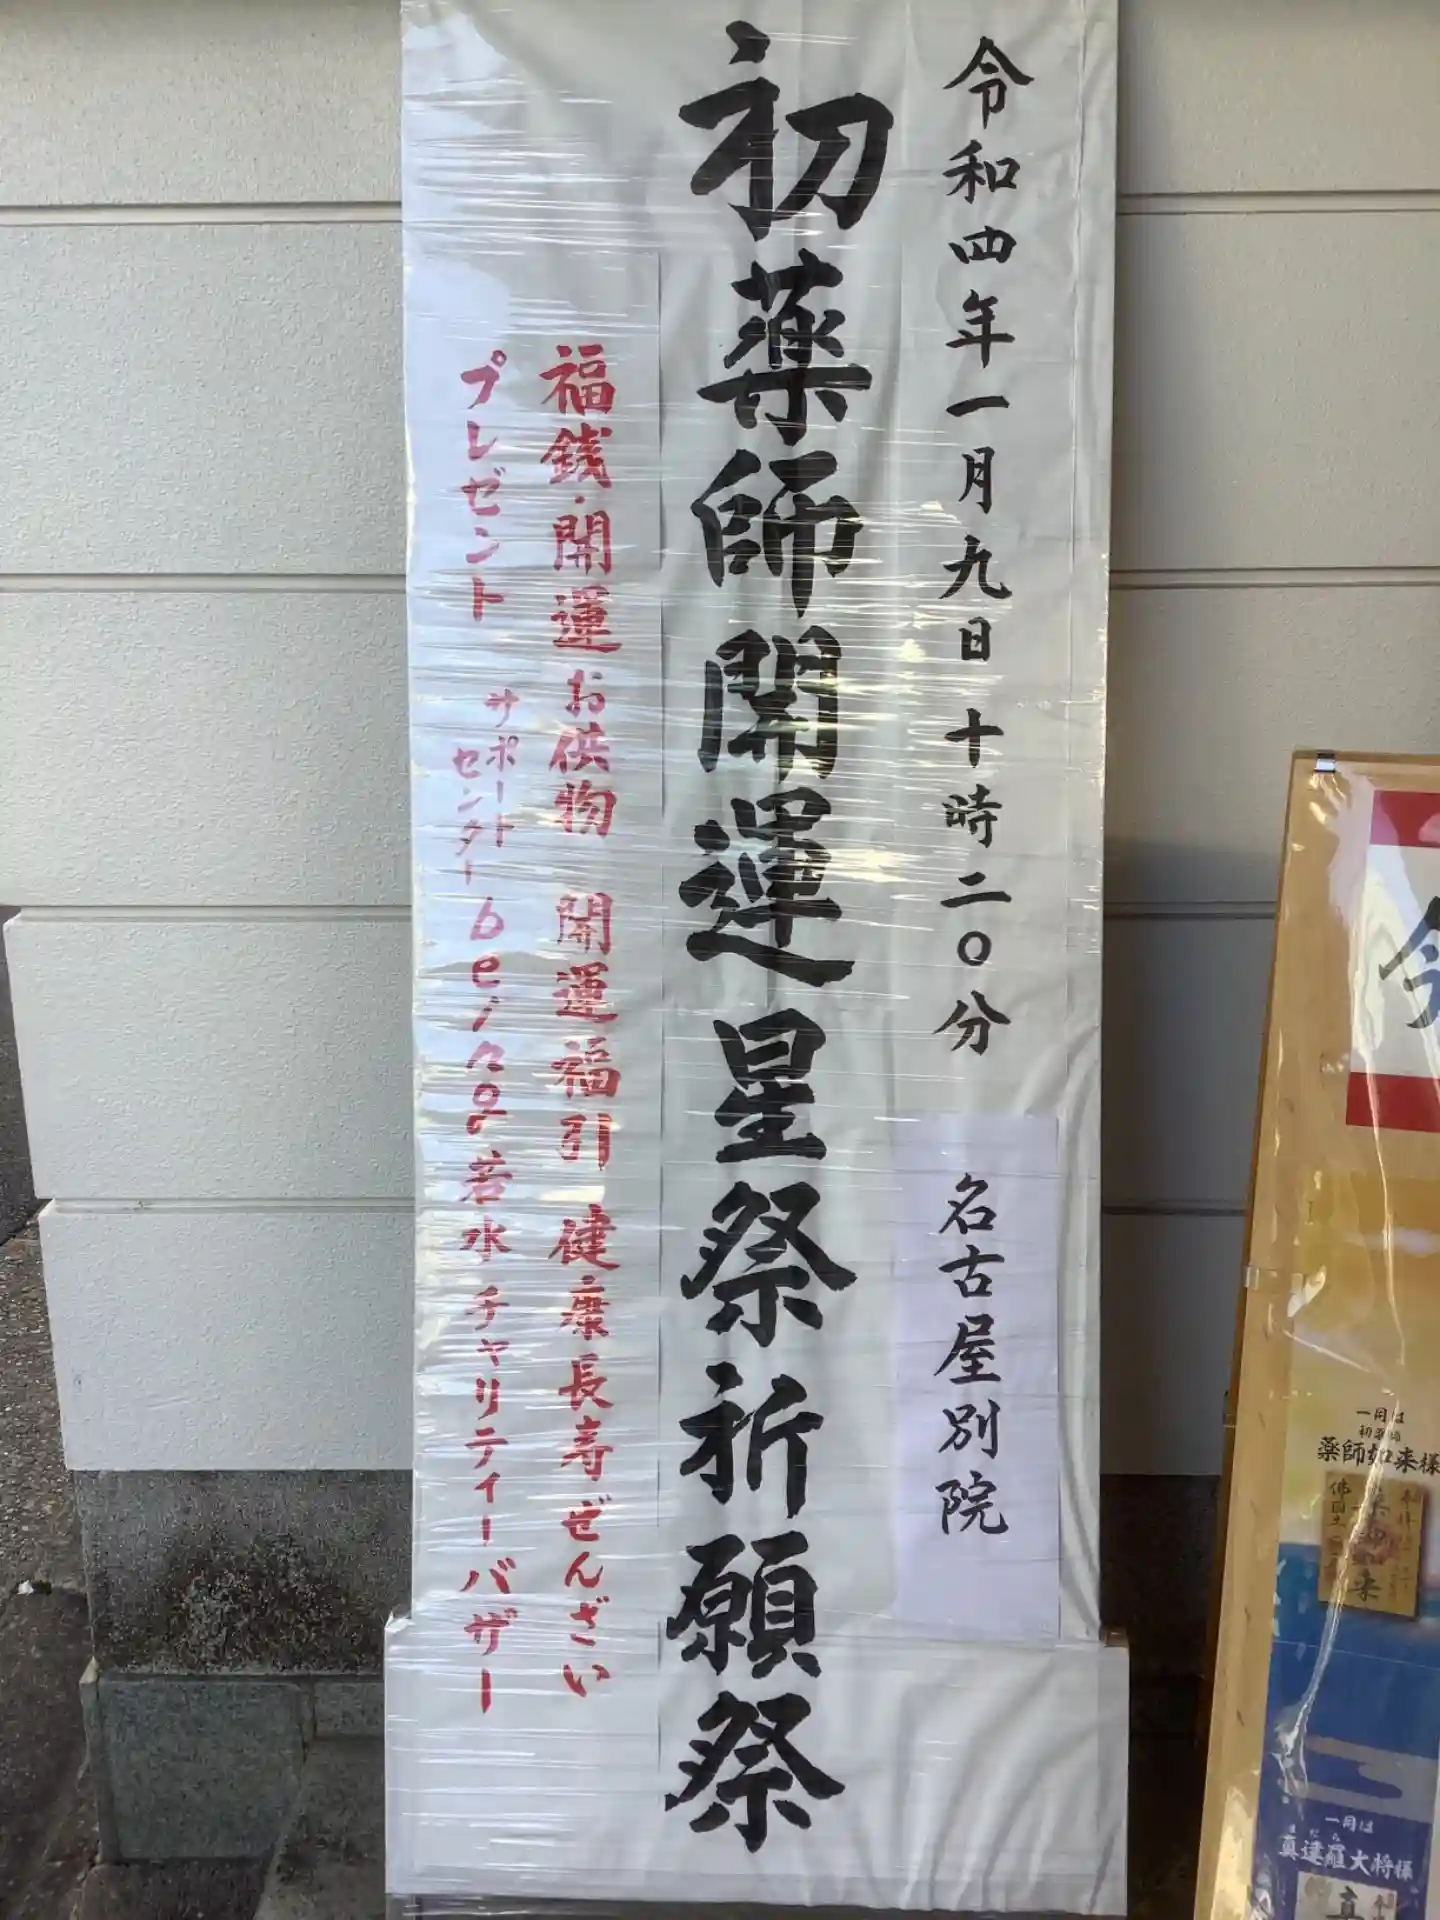 令和四年一月九日十時二〇分
名古屋別院
初薬師開運星祭祈願祭
福銭・開運お供物 開運福引 健康長寿ぜんざい
プレゼント サポートセンターbeing 若水 チャリティーバザー
今
一月は
初薬師
薬師如来様
一月は
まだら
真達羅大将様
真